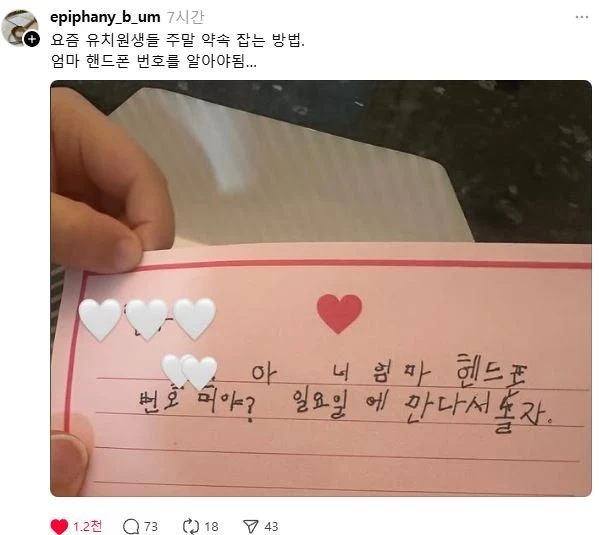 epiphany_b_um 7시간
요즘 유치원생들 주말 약속 잡는 방법.
엄마 핸드폰 번호를 알아야됨...
아 너 엄마 헨드폰
번호 머야? 일요일 에 만다서 놀자.
1.2천 73 18 43